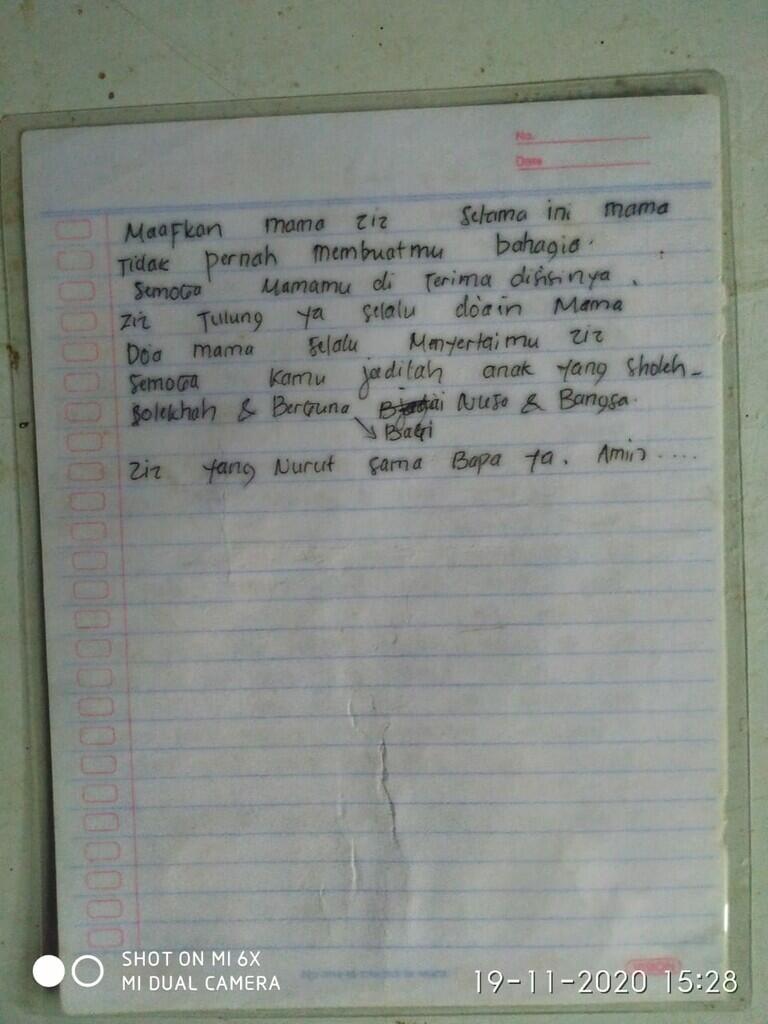 No.
Date
Maafkan mama ziz selama ini mama
Tidak pernah membuatmu bahagia.
Semoga Mamamu di Terima disisinya.
ziz Tulung ya selalu doain Mama
Doa mama selalu Menyertaimu ziz
Semoga kamu jadilah anak yang sholeh-
solekhah & Berguna Nusa & Bangsa.
Bagi
ziz yang Nurut sama Bapa ya. Amin....
SHOT ON MI 6X
MI DUAL CAMERA
19-11-2020 15:28